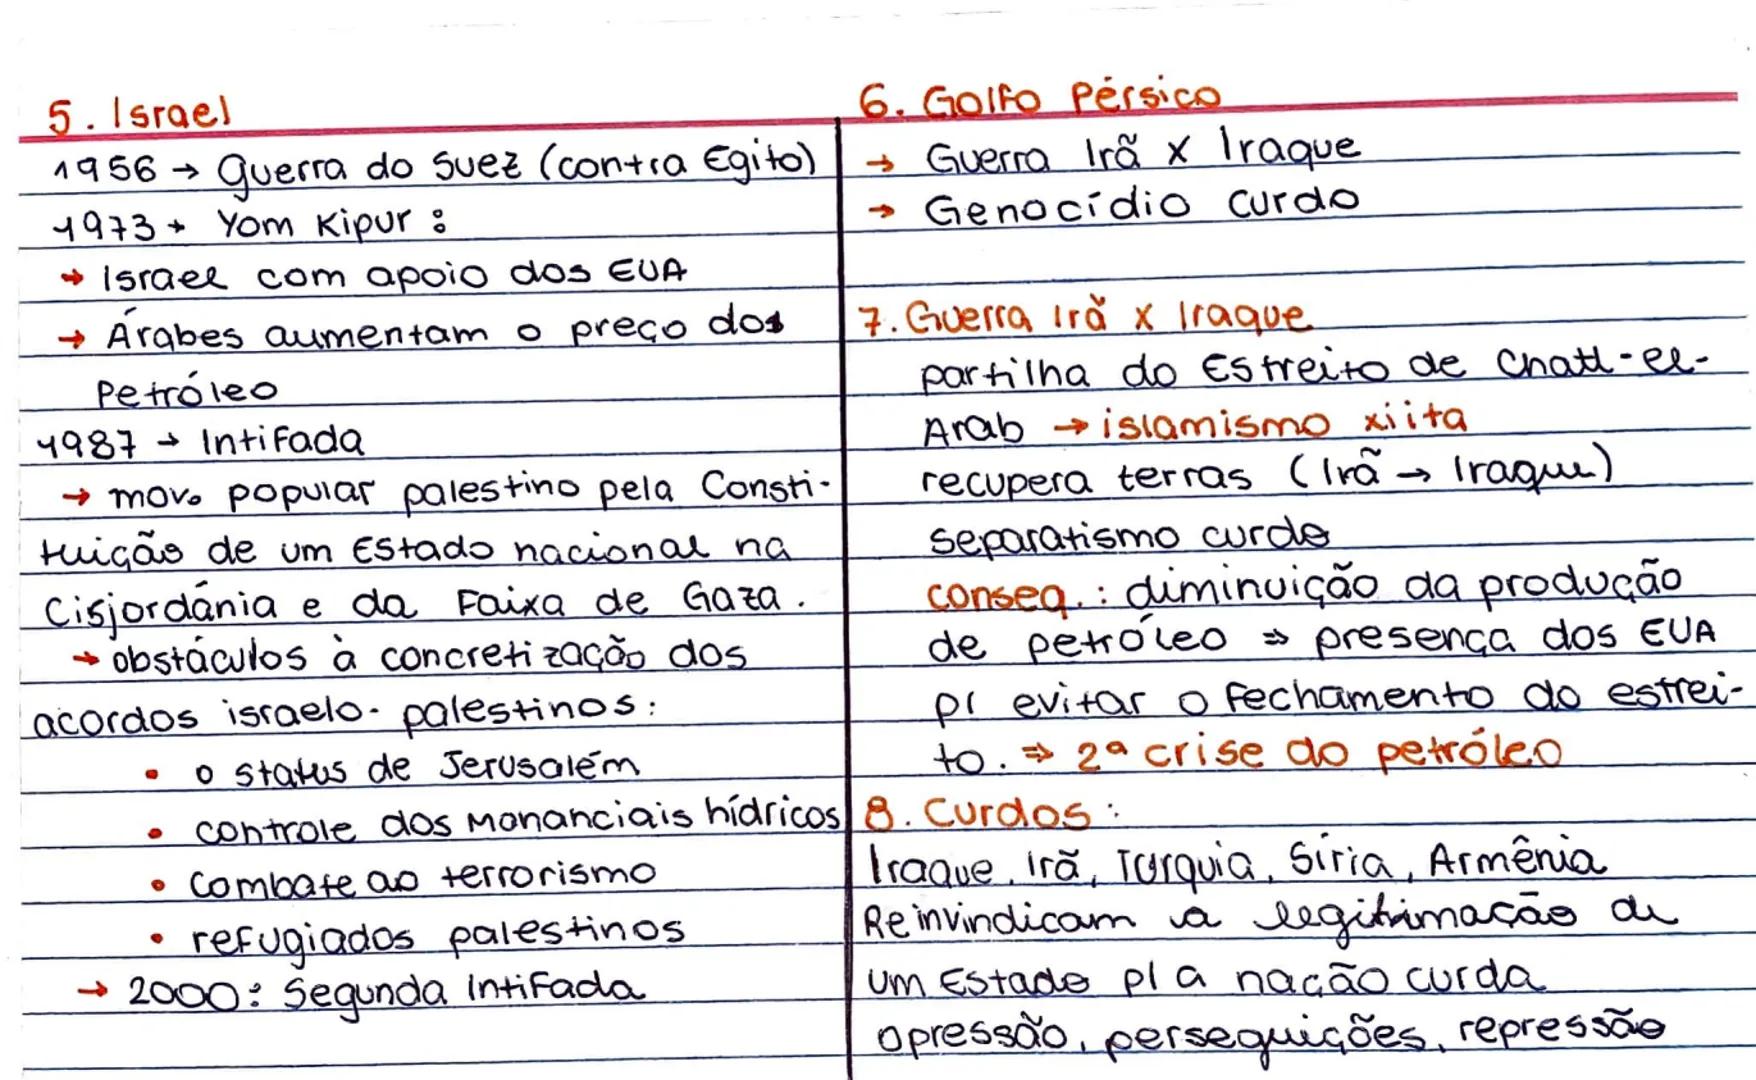 5. Israel
1956 → Guerra do Suez (contra Egito)
1973 → Yom Kipur :
→ Israel com apoio dos EUA
→ Árabes aumentam o preço dos
Petróleo
1987 → Intifada
→ mov. popular palestino pela Consti-
tuição de um Estado nacional na
Cisjordânia e da Faixa de Gaza.
→ obstáculos à concretização dos
acordos israelo-palestinos:
• o status de Jerusalém
• controle dos mananciais hídricos
• combate ao terrorismo
• refugiados palestinos
→ 2000: Segunda Intifada
6. Golfo Pérsico
→ Guerra Irã x Iraque
→ Genocídio curdo
7. Guerra Irã x Iraque
partilha do Estreito de Chatt-el-
Arab → islamismo xiita
recupera terras (Irã → Iraque)
separatismo curdo
conseq.: diminuição da produção
de petróleo ⇒ presença dos EUA
p/ evitar o fechamento do estrei-
to. ⇒ 2ª crise do petróleo
8. Curdos :
Iraque, Irã, Turquia, Síria, Armênia
Reinvindicam a legitimação de
um Estado p/ a nação curda
opressão, perseguições, repressão